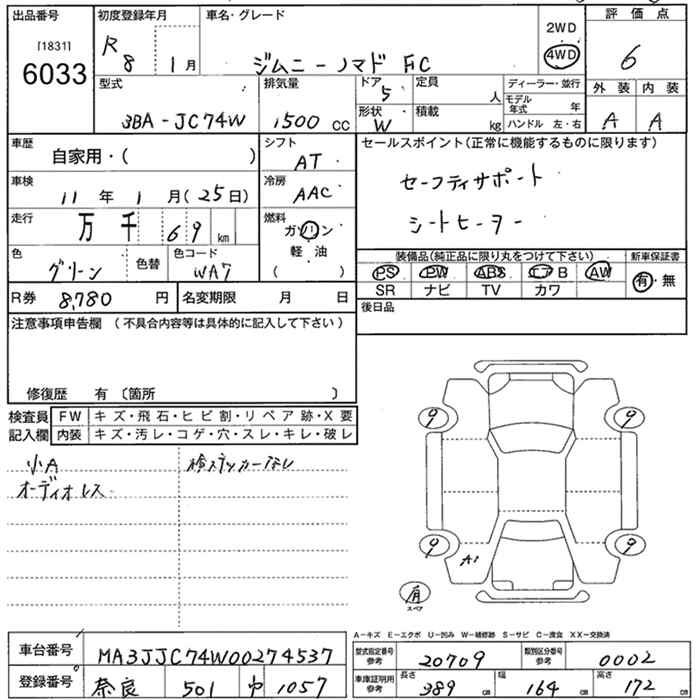 出品番号 初度登録年月 車名・グレード 2WD 評価点
[1831] 4WD
6033 R8 1月 ジムニーノマド FC 6
型式 排気量 ドア 5 定員 人 ディーラー・並行 外装 内装
モデル年式 年
3BA-JC74W 1500 CC 形状 W 積載 kg ハンドル 左・右 A A
車歴 自家用・( ) シフト AT セールスポイント(正常に機能するものに限ります)
車検 11年 1月(25日) 冷房 AAC セーフティサポート
走行 万 千 69 km 燃料 ガソリン シートヒーター
軽油
色 グリーン 色替 色コード WA7 ( ) 装備品(純正品に限り丸をつけて下さい) 新車保証書
PS PW ABS エアB AW 有・無
R券 8,780 円 名変期限 月 日 SR ナビ TV カワ
注意事項申告欄 (不具合内容等は具体的に記入して下さい) 後日品
修復歴 有 〔箇所 〕
検査員 FW キズ・飛石・ヒビ割・リペア跡・X要
記入欄 内装 キズ・汚レ・コゲ・穴・スレ・キレ・破レ
小A 検ステッカーなし
オーディオレス
9 9
9 9
A1
スペア
A-キズ E-エクボ U-凹み W-補修跡 S-サビ C-腐食 XX-交換済
車台番号 MA3JJC74W00274537 型式指定番号 参考 20709 類別区分番号 参考 0002
登録番号 奈良 501 1057 車庫証明用 参考 長さ 389 cm 幅 164 cm 高さ 172 cm